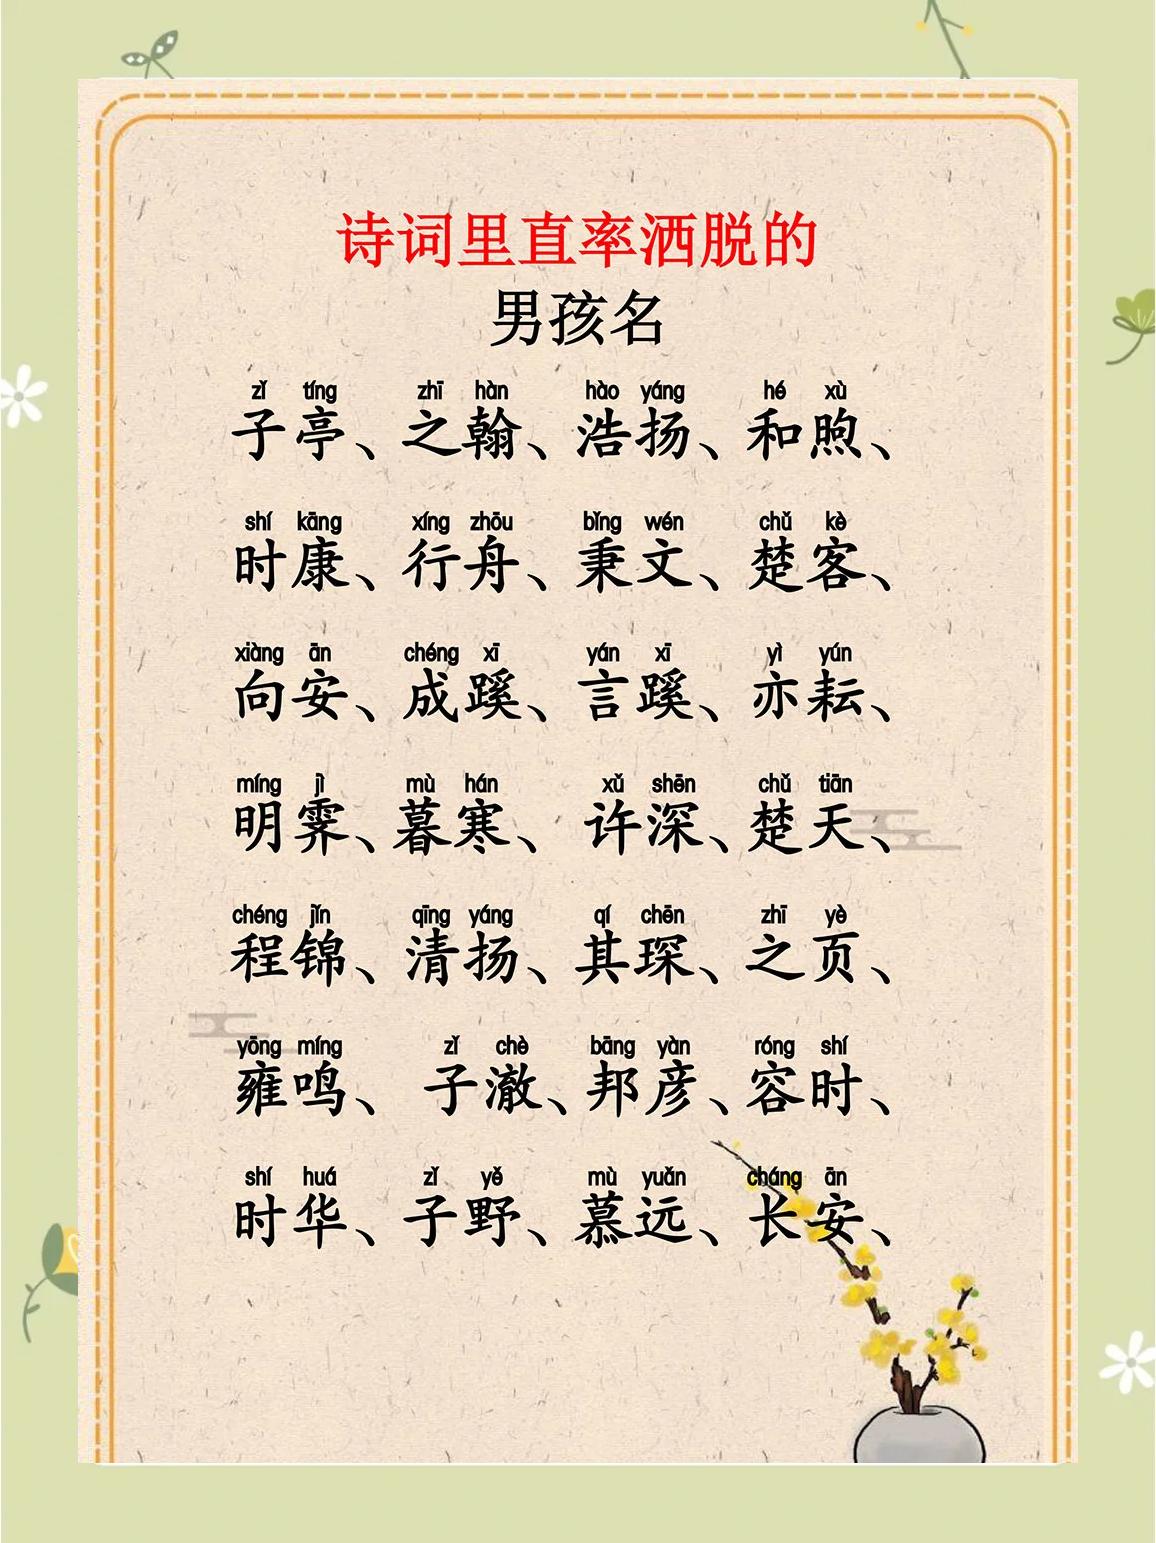 诗词里直率洒脱的
男孩名
zǐ tíng zhī hàn hào yáng hé xù
子亭、之翰、浩扬、和煦、
shí kāng xíng zhōu bǐng wén chǔ kè
时康、行舟、秉文、楚客、
xiàng ān chéng xī yán xī yì yún
向安、成蹊、言蹊、亦耘、
míng jì mù hán xǔ shēn chǔ tiān
明霁、暮寒、许深、楚天、
chéng jǐn qīng yáng qí chēn zhī yè
程锦、清扬、其琛、之页、
yōng míng zǐ chè bāng yàn róng shí
雍鸣、子澈、邦彦、容时、
shí huá zǐ yě mù yuǎn cháng ān
时华、子野、慕远、长安、